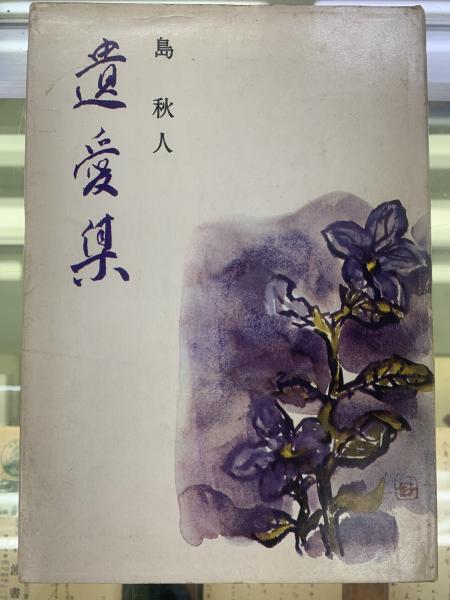 島秋人
遺愛集